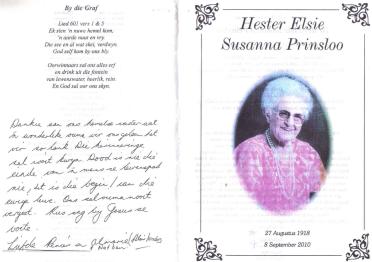 By die Graf
Lied 601 vers 1 & 5
Ek sien 'n nuwe hemel kom,
'n aarde nuut en vry.
Die see en al wat skei, verdwyn.
God self kom by ons bly.
Oorwinnaars sal ons alles erf
en drink uit die fontein
van lewenswater, heerlik, rein.
En God sal oor ons skyn.
Dankie aan ons hemelse vader wat
'n wonderlike ouma vir ons gegee het
vir so lank. Die herinneringe
sal voort Dood is nie die
einde van 'n mens se lewenspad
nie, dit is die begin van die
ewige lewe. Ons sal nooit
vergeet. Rus sag by Jesus se
voete.
Liefde
Hester Elsie
Susanna Prinsloo
27 Augustus 1918
8 September 2010